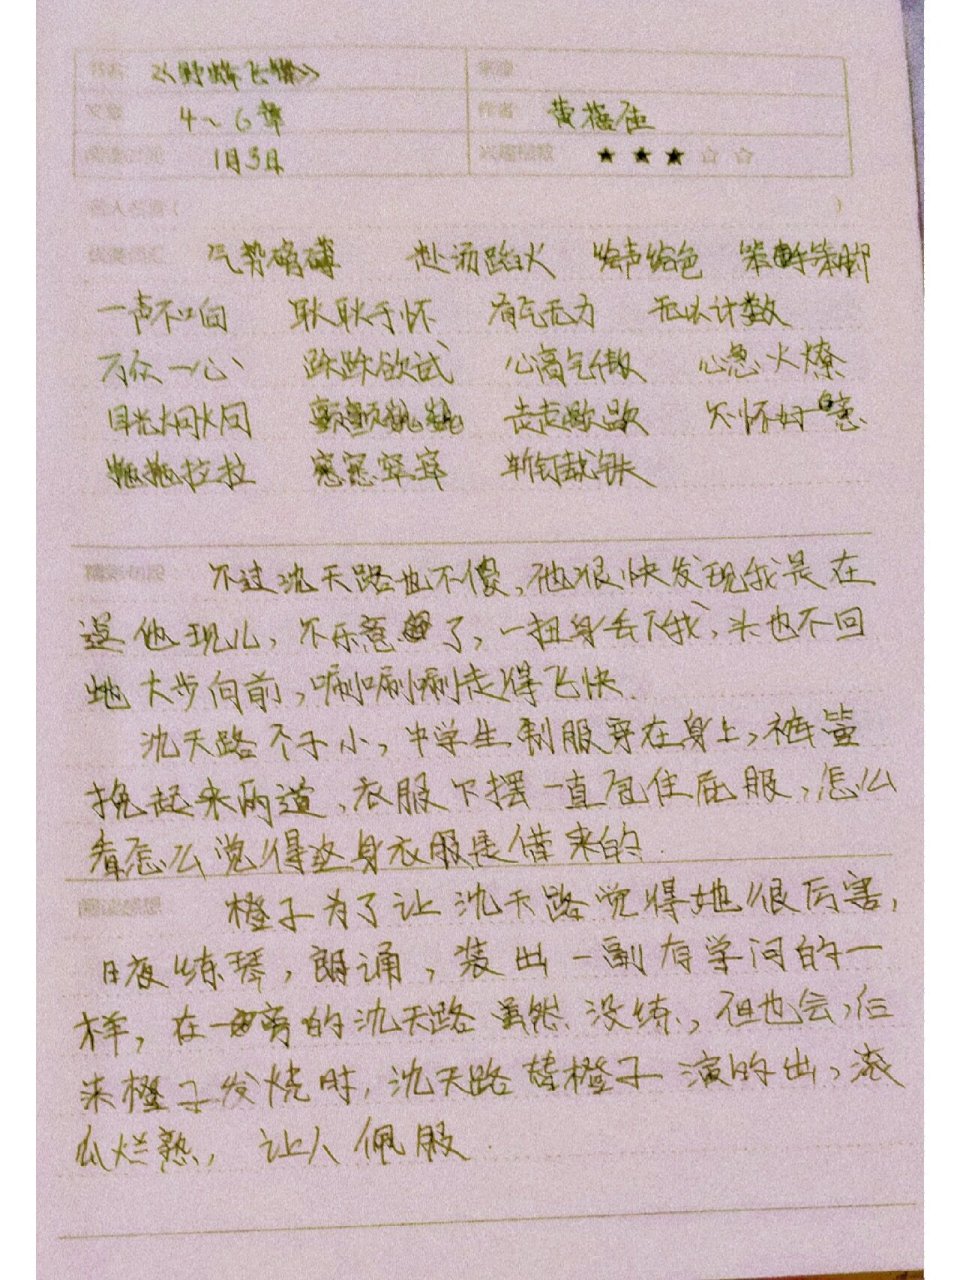 书名 《野蜂飞舞》
文章 4～6章 作者 黄蓓佳
1月3日 兴趣指数 ★★★☆☆
名人名言（ ）
优美词汇 气势磅礴 赴汤蹈火 绘声绘色 笨手笨脚
一声不响 耿耿于怀 有气无力 无以计数
万众一心 跃跃欲试 心高气傲 心急火燎
目光炯炯 走走歇歇 不怀好意
拖拖拉拉 窸窸窣窣 斩钉截铁
精彩句段 不过沈天路也不傻，他很快发现我是在
逗他玩儿，不乐意了，一扭身丢下我，头也不回
地大步向前，唰唰唰走得飞快
沈天路不小，中学生制服穿在身上，裤管
挽起来两道，衣服下摆一直包住屁服，怎么
看怎么觉得这身衣服是借来的.
阅读感想 橙子为了让沈天路觉得她很厉害，
日夜练琴，朗诵，装出一副有学问的一
样，在一旁的沈天路虽然没练，但也会，后
来橙子发烧时，沈天路替橙子演的出，滚
瓜烂熟，让人佩服.